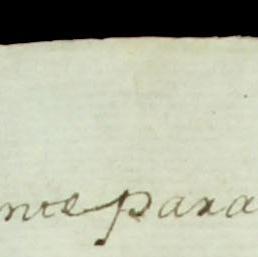 nte para